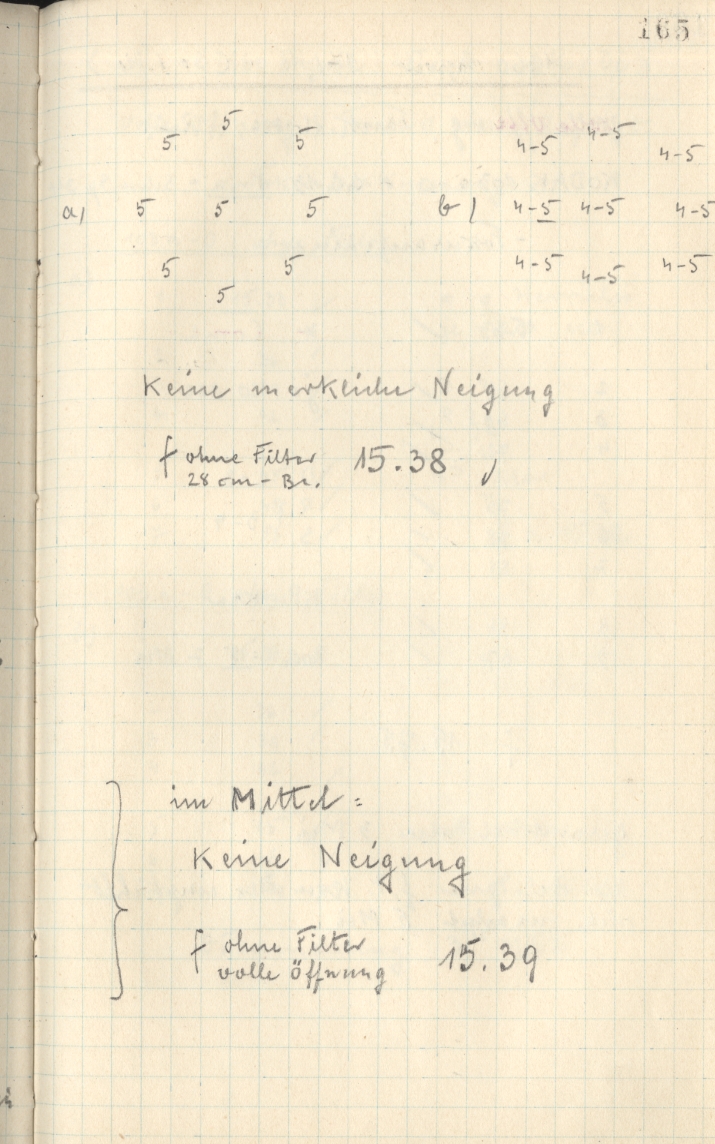 165
5 5 5 4-5 4-5 4-5
a) 5 5 5 b) 4-5 4-5 4-5
5 5 5 4-5 4-5 4-5
Keine merkliche Neigung
f ohne Filter 15.38 ✓
28 cm - Br.
im Mittel:
Keine Neigung
f ohne Filter 15.39
volle Öffnung